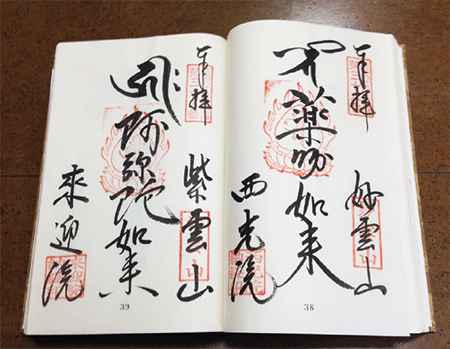 奉拝
妙雲山
薬師如来
西光院
38
奉拝
紫雲山
阿弥陀如来
来迎院
39